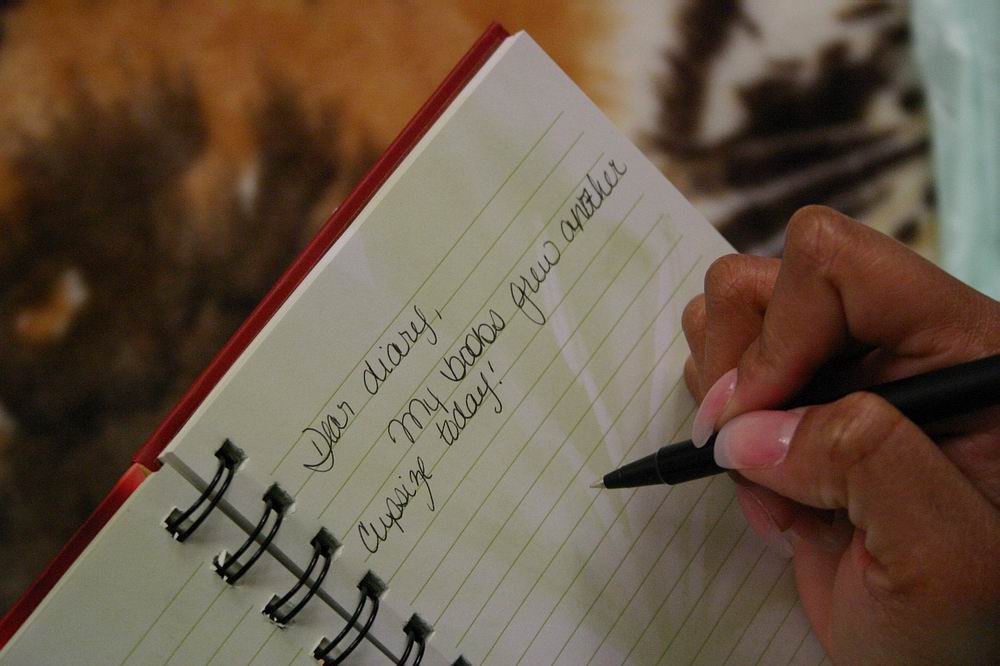 Dear diary,
My boobs grew another
cupsize today!